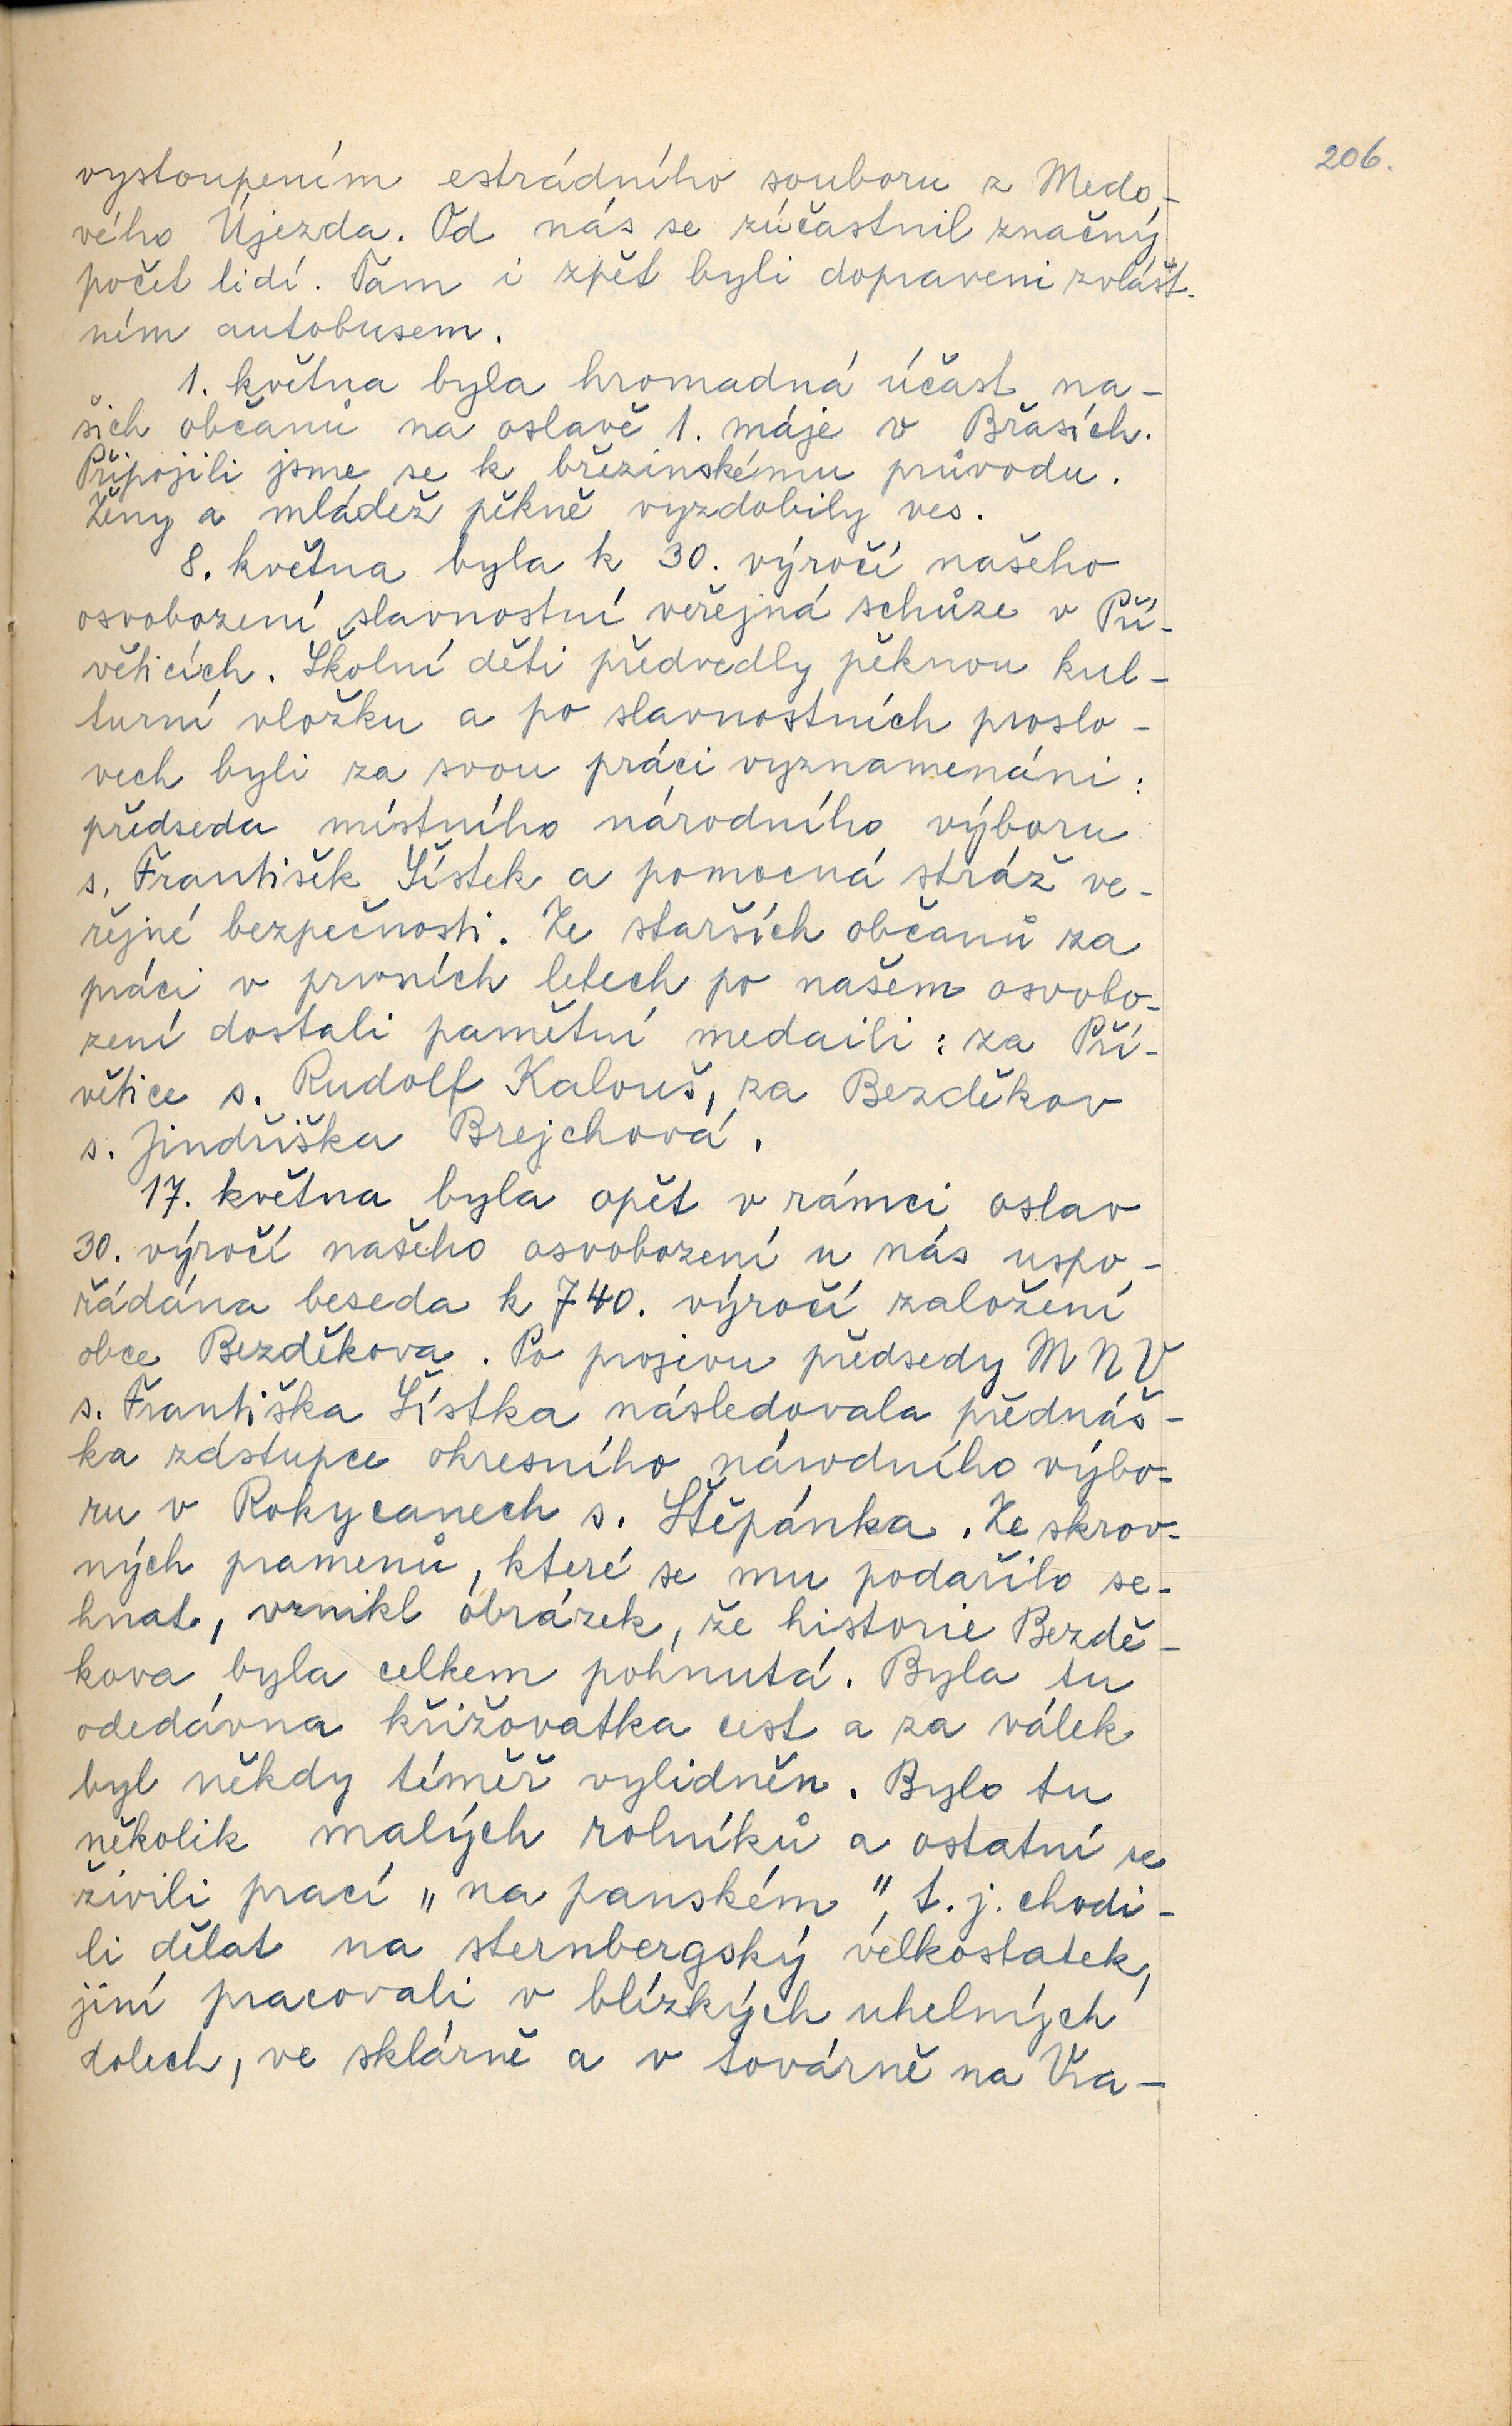 206.
vystoupením estrádního souboru z Medo-
vého Újezda. Od nás se zúčastnil značný
počet lidí. Tam i zpět byli dopraveni zvlášt-
ním autobusem.
1. května byla hromadná účast na-
šich občanů na oslavě 1. máje v Břasích.
Připojili jsme se k březinskému průvodu.
Ženy a mládež pěkně vyzdobily ves.
8. května byla k 30. výročí našeho
osvobození slavnostní veřejná schůze v Pří-
věticích. Školní děti předvedly pěknou kul-
turní vložku a po slavnostních proslo-
vech byli za svou práci vyznamenáni:
předseda místního národního výboru
s. František Šístek a pomocná stráž ve-
řejné bezpečnosti. Ze starších občanů za
práci v prvních letech po našem osvobo-
zení dostali pamětní medaili: za Pří-
větice s. Rudolf Kalouš, za Bezděkov
s. Jindřiška Brejchová.
17. května byla opět v rámci oslav
30. výročí našeho osvobození u nás uspo-
řádána beseda k 740. výročí založení
obce Bezděkova. Po projevu předsedy MNV
s. Františka Šístka následovala přednáš-
ka zástupce okresního národního výbo-
ru v Rokycanech s. Štěpánka. Ze skrov-
ných pramenů, které se mu podařilo se-
hnat, vznikl obrázek, že historie Bezdě-
kova byla celkem pohnutá. Byla tu
odedávna křižovatka cest a za válek
byl někdy téměř vylidněn. Bylo tu
několik malých rolníků a ostatní se
živili prací „na panském", t. j. chodi-
li dělat na sternbergský velkostatek,
jiní pracovali v blízkých uhelných
dolech, ve sklárně a v továrně na Vra-